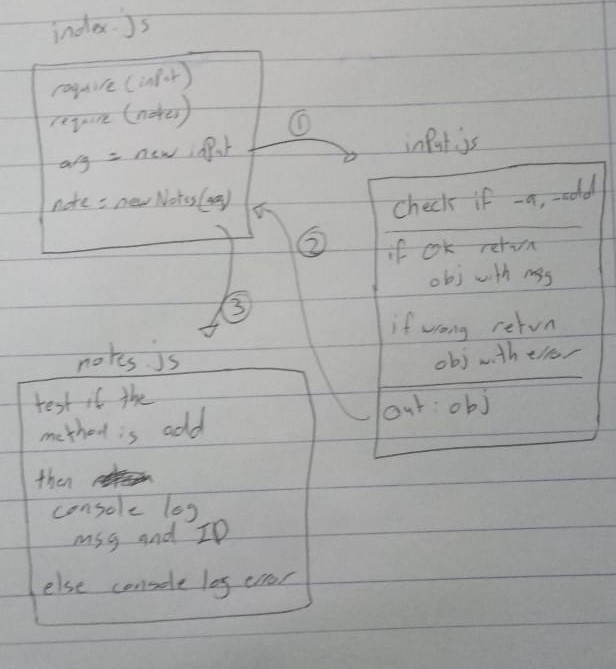 index.js
require (input)
require (notes)
arg = new input
note = new Notes(arg)
①
input.js
check if -a, -add
if ok return
obj with msg
if wrong return
obj with error
out: obj
②
③
notes.js
test if the
method is add
then
console log
msg and ID
else console log error